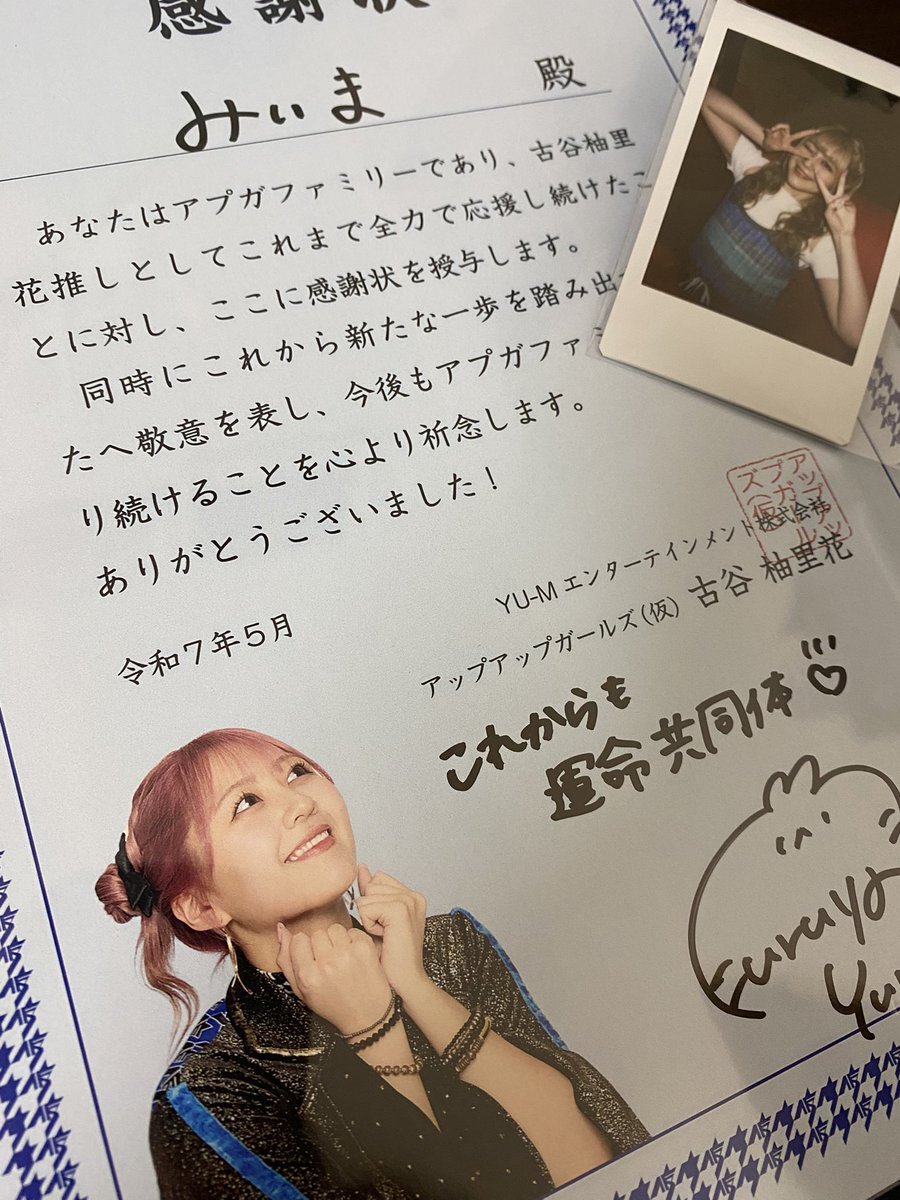 感謝状
みぃま 殿
あなたはアプガファミリーであり、古谷柚里
花推しとしてこれまで全力で応援し続けたこ
とに対し、ここに感謝状を授与します。
同時にこれから新たな一歩を踏み出
たへ敬意を表し、今後もアプガファミ
り続けることを心より祈念します。
ありがとうございました!
令和7年5月
YU-Mエンターテインメント株式会社
アップアップガールズ(仮) 古谷 柚里花
アップアップガールズ(仮)
これからも
運命共同体♡
Furuya
Yu